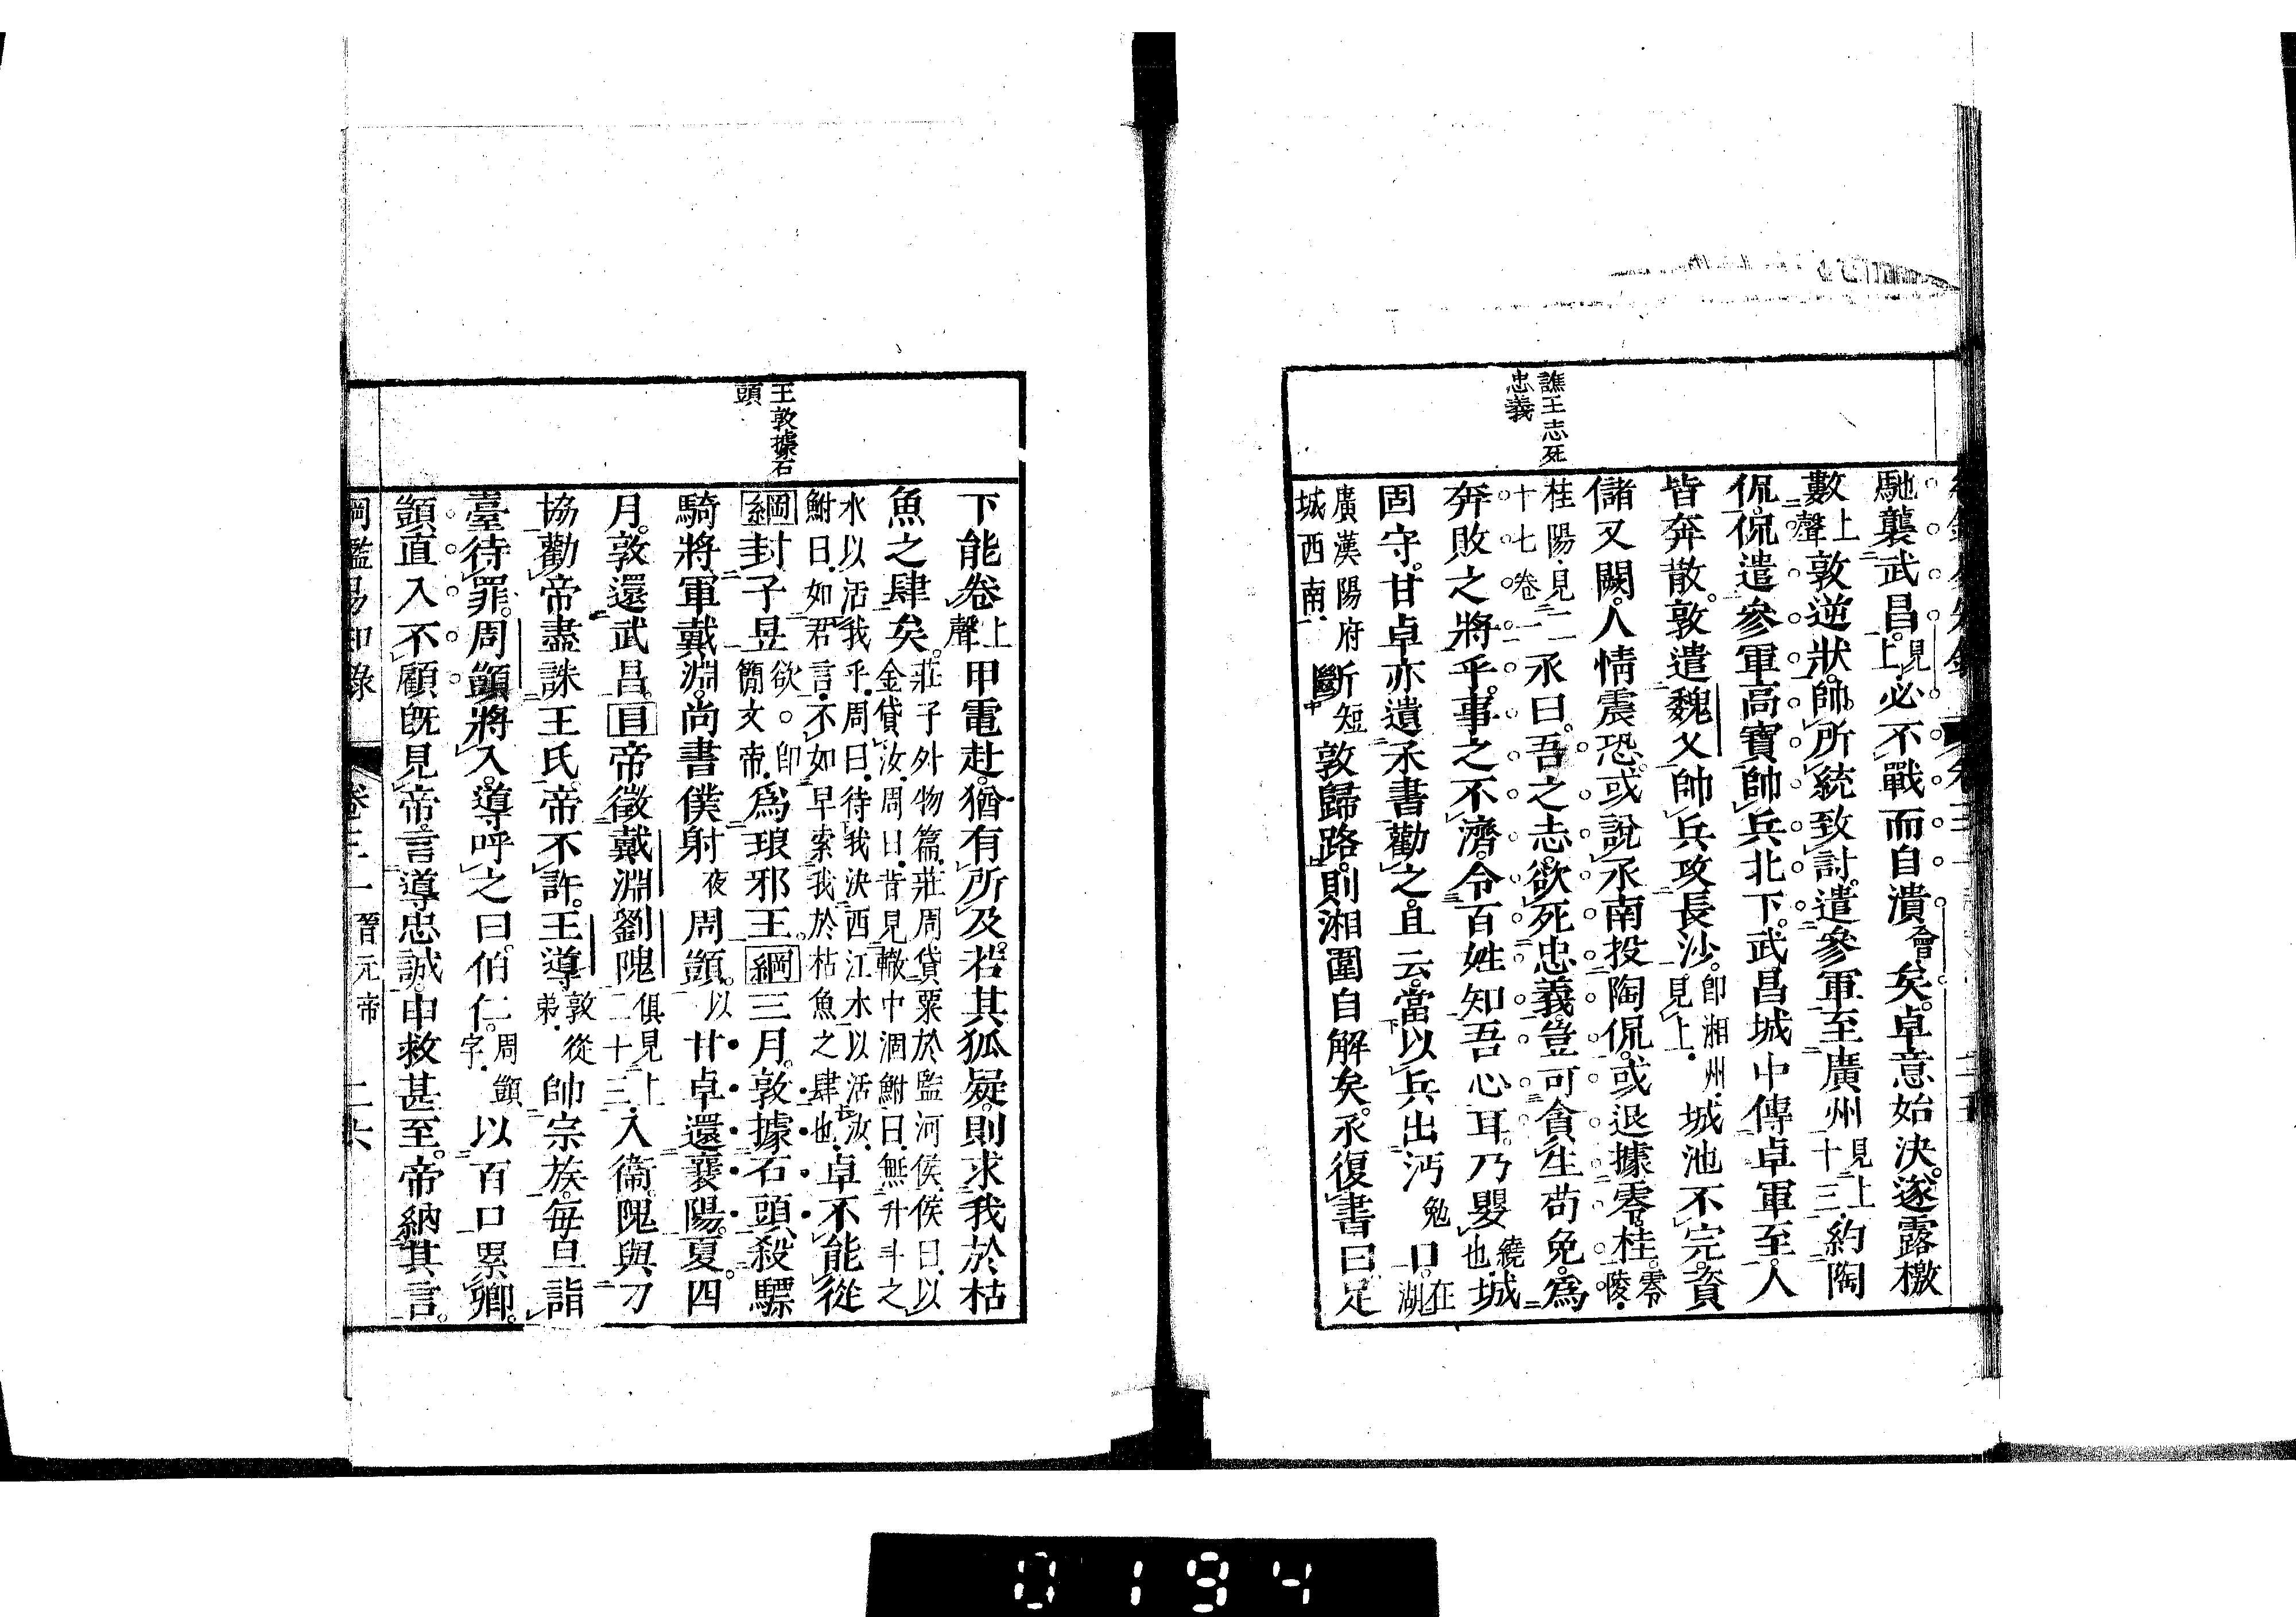 譙王志死
忠義
馳襲武昌見上必不戰而自潰會矣卓意始決遂露檄
數上聲敦逆狀帥所統致討遣參軍至廣州見上十三約陶
侃侃遣參軍高寶帥兵北下武昌城中傳卓軍至人
皆奔散敦遣魏乂帥兵攻長沙卽湘州見上城池不完資
儲又闕人情震恐或說氶南投陶侃或退據零桂零陵
桂陽見二十七卷一氶曰吾之志欲死忠義豈可貪生苟免爲
奔敗之將乎事之不濟令百姓知吾心耳乃嬰繞也城
固守甘卓亦遺氶書勸之且云當以兵出沔勉口在湖
廣漢陽府城西南斷短敦歸路則湘圍自解矣氶復書曰足
王敦據石
頭
下能卷上聲甲電赴猶有所及若其狐疑則求我於枯
魚之肆矣莊子外物篇莊周貸粟於監河侯侯曰以金貸汝周曰昔見轍中涸鮒曰無升斗之
水以活我乎周曰待我決西江水以活汝鮒曰如君言不如早索我於枯魚之肆也卓不能從
綱封子昱欲卽簡文帝爲琅邪王綱三月敦據石頭殺驃
騎將軍戴淵尚書僕射夜周顗以甘卓還襄陽夏四
月敦還武昌目帝徵戴淵劉隗俱見上二十三入衞隗與刁
協勸帝盡誅王氏帝不許王導敦從弟帥宗族每旦詣
臺待罪周顗將入導呼之曰伯仁周顗字以百口累卿
顗直入不顧旣見帝言導忠誠申救甚至帝納其言
綱鑑易知錄 卷三一 晉元帝 二六